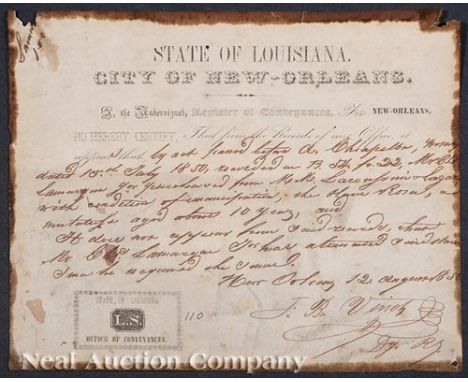 STATE OF LOUISIANA.
CITY OF NEW-ORLEANS.
I, the Undersigned, Register of Conveyances, For NEW-ORLEANS.
DO HEREBY CERTIFY, That from the Records of my Office it
appears that by act passed before A. Chiapella, Notary
dated 15th July 1850, recorded in B 52 fo 22, Mr
Lamarque purchased from
with condition of emancipation, the slave Rosa, a
mulatress aged about 10 years, and
It does not appear from said records, that
Mr Lamarque has alienated said slave
since he acquired the same.
New Orleans 12 August 185
F. B. Vinot
Dy. Rg.
STATE OF LOUISIANA
L.S.
OFFICE OF CONVEYANCES.
110
Neal Auction Company